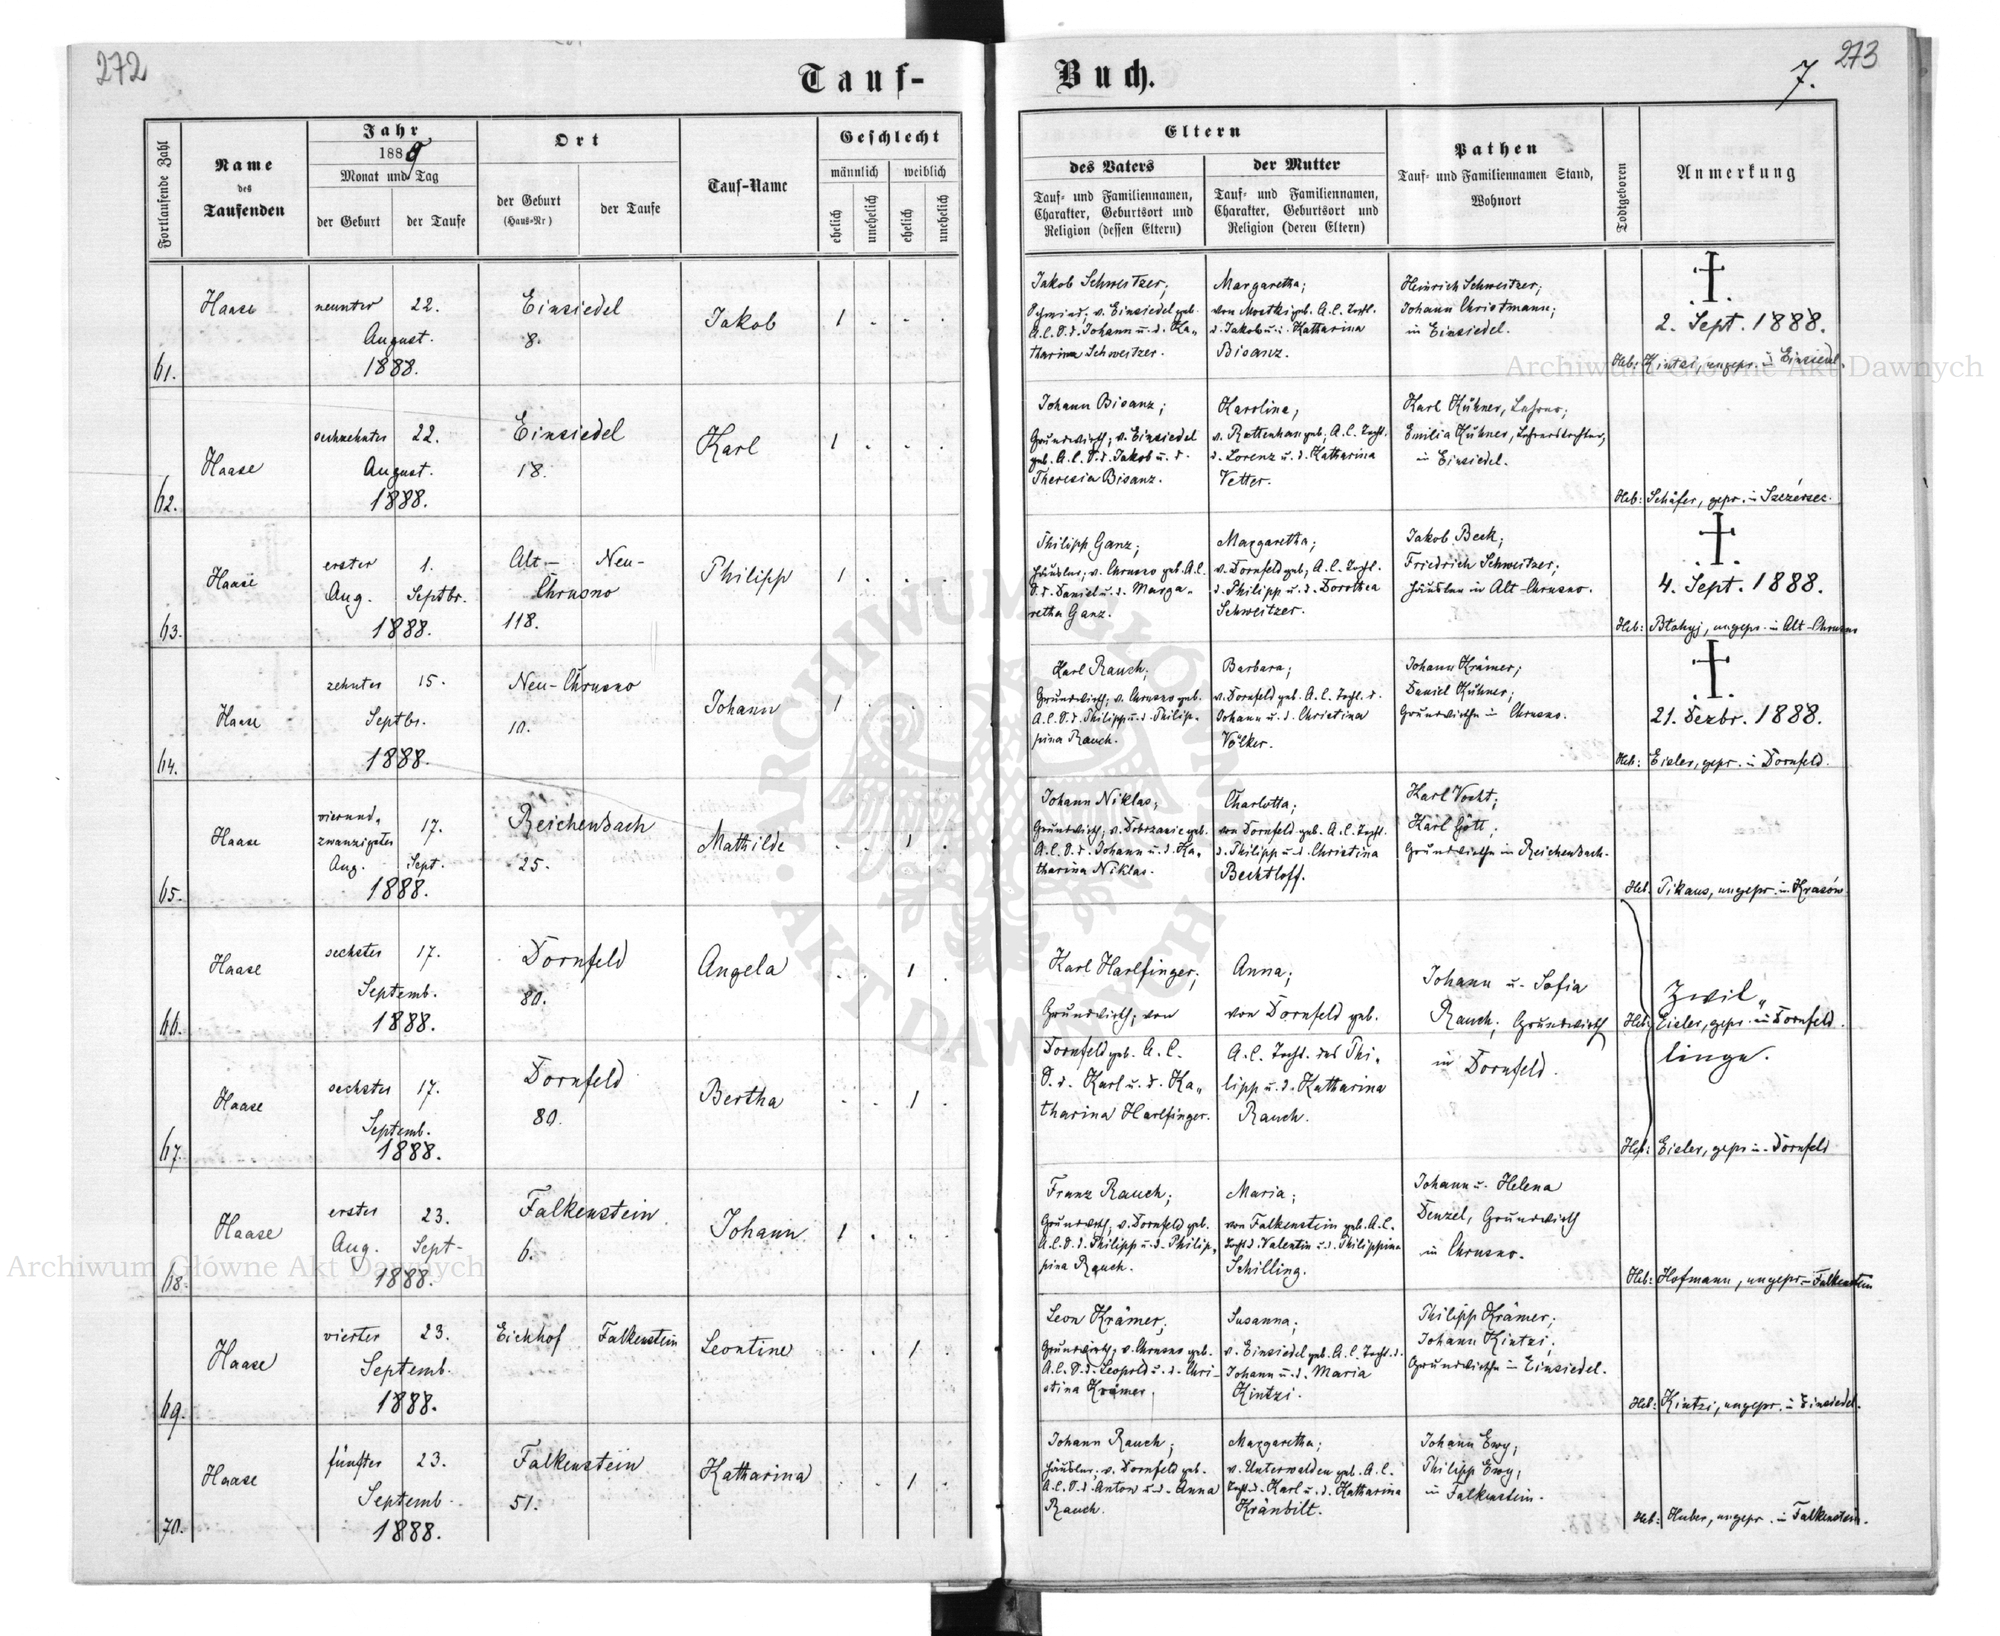 272
Tauf-
Buch.
7. 273
Fortlaufende Zahl
Name
des
Taufenden
Jahr
1888
Monat und Tag
der Geburt
der Taufe
Ort
der Geburt
(Haus-Nr)
der Taufe
Tauf-Name
Geschlecht
männlich
weiblich
ehelich
unehelich
ehelich
unehelich
Eltern
des Vaters
Tauf- und Familiennamen,
Charakter, Geburtsort und
Religion (dessen Eltern)
der Mutter
Tauf- und Familiennamen,
Charakter, Geburtsort und
Religion (deren Eltern)
Pathen
Tauf- und Familiennamen Stand,
Wohnort
Todtgeboren
Anmerkung
61.
Haase
neunter 22.
August.
1888.
Einsiedel
8.
Jakob
1 . . .
Jakob Schweitzer;
Schmied; v. Einsiedel geb.
A.C. S.d. Johann u. d. Ka„
tharina Schweitzer.
Margaretha;
von Mostki geb. A.C. Tocht.
d. Jakob u. d. Katharina
Bisanz.
Heinrich Schweitzer;
Johann Christmann;
in Einsiedel.
2. Sept. 1888.
Heb: Kintzi, ungepr. in Einsiedel.
62.
Haase
sechzehnter 22.
August.
1888.
Einsiedel
18.
Karl
1 . . .
Johann Bisanz;
Grundwirth; v. Einsiedel
geb. A.C. S.d. Jakob u. d.
Theresia Bisanz.
Karolina;
v. Rottenhan geb. A.C. Tocht.
d. Lorenz u. d. Katharina
Vetter.
Karl Kühner, Lehrer;
Emilia Kühner, Lehrerstochter,
in Einsiedel.
Heb: Schäfer, gepr. in Szczérzec.
63.
Haase
erster 1.
Aug. Septbr.
1888.
Alt- Neu-
Chrusno
118.
Philipp
1 . . .
Philipp Ganz;
Häusler; v. Chrusno geb. A.C.
S.d. Daniel u. d. Marga-
retha Ganz.
Margaretha;
v. Dornfeld geb. A.C. Tocht.
d. Philipp u. d. Dorothea
Schweitzer.
Jakob Beck;
Friedrich Schweitzer;
Häusler in Alt-Chrusno.
4. Sept. 1888.
Heb: ungepr. in Alt-Chrusno
64.
Haase
zehnter 15.
Septbr.
1888.
Neu-Chrusno
10.
Johann
1 . . .
Karl Rauch;
Grundwirth; v. Chrusno geb.
A.C. S.d. Philipp u. d. Philip-
pina Rauch.
Barbara;
v. Dornfeld geb. A.C. Tocht. d.
Johann u. d. Christina
Völker.
Johann Krämer;
Daniel Kühner;
Grundwirthe in Chrusno.
21. Dezbr. 1888.
Heb: Eisler, gepr. in Dornfeld.
65.
Haase
vierund„
zwanzigster 17.
Aug. Sept.
1888.
Reichenbach
25.
Mathilde
. . 1 .
Johann Niklas;
Grundwirth; v. Dobrzanie geb.
A.C. S.d. Johann u. d. Ka„
tharina Niklas.
Charlotta;
von Dornfeld geb. A.C. Tocht.
d. Philipp u. d. Christina
Bechtloff.
Karl Vocht;
Karl Gött;
Grundwirthe in Reichenbach.
Heb: Pikaus, ungepr. in Krasów
66.
Haase
sechster 17.
Septemb.
1888.
Dornfeld
80.
Angela
. . 1 .
Karl Harlfinger;
Grundwirth; von
Dornfeld geb. A.C.
S.d. Karl u. d. Ka„
tharina Harlfinger.
Anna;
von Dornfeld geb.
A.C. Tocht. des Phi-
lipp u. d. Katharina
Rauch.
Johann u. Sofia
Rauch; Grundwirth
in Dornfeld.
Zwil„
Heb: Eisler, gepr. in Dornfeld.
linge.
67.
Haase
sechster 17.
Septemb.
1888.
Dornfeld
80.
Bertha
. . 1 .
Heb: Eisler, gepr. in Dornfeld
68.
Haase
erster 23.
Aug. Sept.
1888.
Falkenstein
6.
Johann
1 . . .
Franz Rauch;
Grundwirth; v. Dornfeld geb.
A.C. S.d. Philipp u. d. Philip„
pina Rauch.
Maria;
von Falkenstein geb. A.C.
Tocht. d. Valentin u. d. Philippina
Schilling.
Johann u. Helena
Denzel, Grundwirth
in Chrusno.
Heb: Hofmann, ungepr. in Falkenstein
69.
Haase
vierter 23.
Septemb.
1888.
Eichhof Falkenstein
Leontine
. . 1 .
Leon Krämer;
Grundwirth; v. Chrusno geb.
A.C. S.d. Leopold u. d. Chri-
stina Krämer.
Susanna;
v. Einsiedel geb. A.C. Tocht. d.
Johann u. d. Maria
Kintzi.
Philipp Krämer;
Johann Kintzi;
Grundwirthe in Einsiedel.
Heb: Kintzi, ungepr. in Einsiedel.
70.
Haase
fünfter 23.
Septemb.
1888.
Falkenstein
51.
Katharina
. . 1 .
Johann Rauch;
Häusler; v. Dornfeld geb.
A.C. S.d. Anton u. d. Anna
Rauch.
Margaretha;
v. Unterwalden geb. A.C.
Tocht. d. Karl u. d. Katharina
Kränbilt.
Johann Ewy;
Philipp Ewy;
in Falkenstein.
Heb: Huber, ungepr. in Falkenstein.
Archiwum Główne Akt Dawnych
Archiwum Główne Akt Dawnych
ARCHIWUM GŁÓWNE AKT DAWNYCH